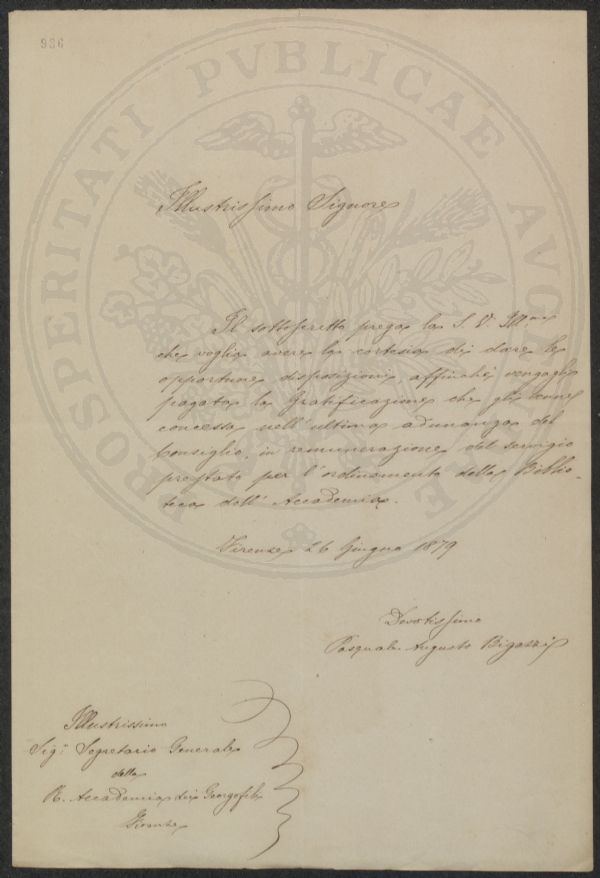 936
PROSPERITATI PVBLICAE AVGENDAE
Illustrissimo Signore
Il sottoscritto prega la S. V. Ill.ma
che voglia avere la cortesia di dare le
opportune disposizioni affinchè vengagli
pagata la Gratificazione che gli venne
concessa nell'ultima adunanza del
Consiglio, in remunerazione del servigio
prestato per l'ordinamento della Biblio-
teca dell'Accademia.
Firenze 26 Giugno 1879
Devotissimo
Pasquale Augusto Bigazzi
Illustrissimo
Sig.r Segretario Generale
della
R. Accademia dei Georgofili
Firenze